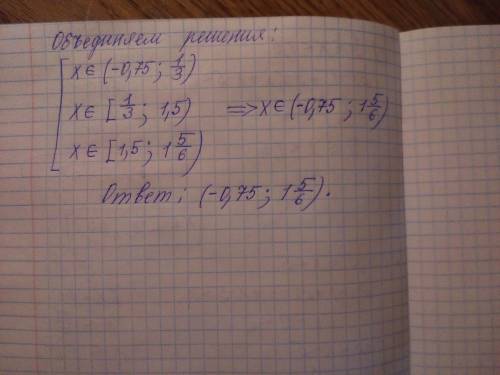 Объединяем решения:
x ∈ (-0,75; 1/3)
x ∈ [1/3; 1,5) ⟹ x ∈ (-0,75; 1 5/6)
x ∈ [1,5; 1 5/6)
Ответ: (-0,75; 1 5/6).